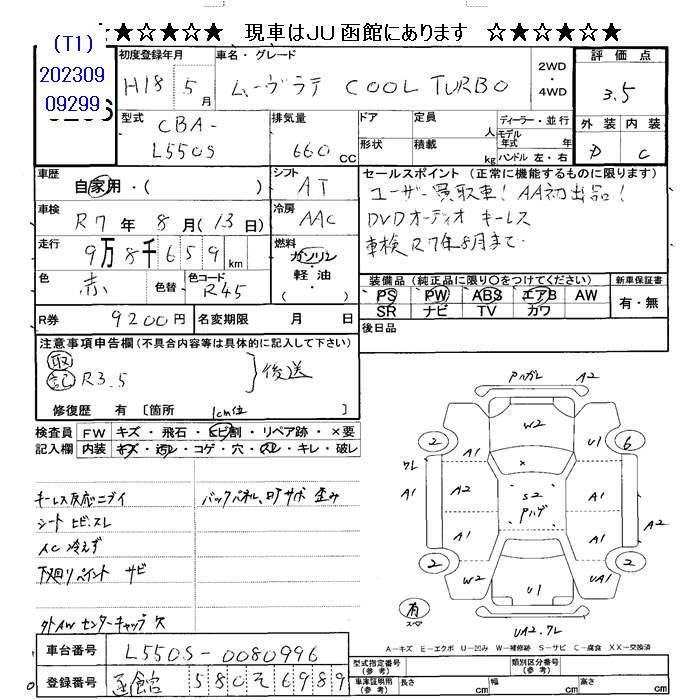 ★☆★☆★ 現車はJU函館にあります ☆★☆★☆
(T1)
202309
09299
初度登録年月
H18年5月
車名・グレード
ムーヴラテ COOL TURBO
2WD
・
4WD
評価点
3.5
外装 内装
D C
型式
CBA-
L550S
排気量
660 CC
ドア
形状
定員
人
積載
kg
ディーラー・並行
モデル
年式 年
ハンドル 左・右
車歴
自家用・( )
シフト
AT
セールスポイント (正常に機能するものに限ります)
ユーザー買取車! AA初出品!
DVDオーディオ キーレス
車検R7年8月まで
車検
R7年8月(13日)
冷房
AAC
走行
9万8千659km
燃料
ガソリン
・
軽・油
( )
色
赤
色替
色コード
R45
装備品 (純正品に限り○をつけてください)
PS PW ABS エアB AW
SR ナビ TV カワ
新車保証書
有・無
R券
9200円
名変期限 月 日
後日品
注意事項申告欄 (不具合内容等は具体的に記入して下さい)
取
記 R3.5
後送
修復歴 有 [箇所 1cm位 ]
検査員
記入欄
FW キズ・飛石・ヒビ割・リペア跡・×要
内装 キズ・汚レ・コゲ・穴・スレ・キレ・破レ
キーレス反応ニブイ
バックパネル、
歪み
シート ヒビ、スレ
AC 冷えず
下廻りペイント サビ
外AW センターキャップ 欠
車台番号
L550S-0080996
登録番号
函館 580 そ 6989
Pハガレ A2
W2
2
6
A1
U1
ワレ
A1
A1
×
S2
Pハゲ
A1
A1
A2
A1
A1
2
2
W2
U1
UA1
有
スペア
UA2.ワレ
A-キズ E-エクボ U-凹み W-補修跡 S-サビ C-腐食 XX-交換済
型式指定番号
(参考)
類別区分番号
(参考)
車検証明用
(参考)
長さ cm
幅 cm
高さ cm